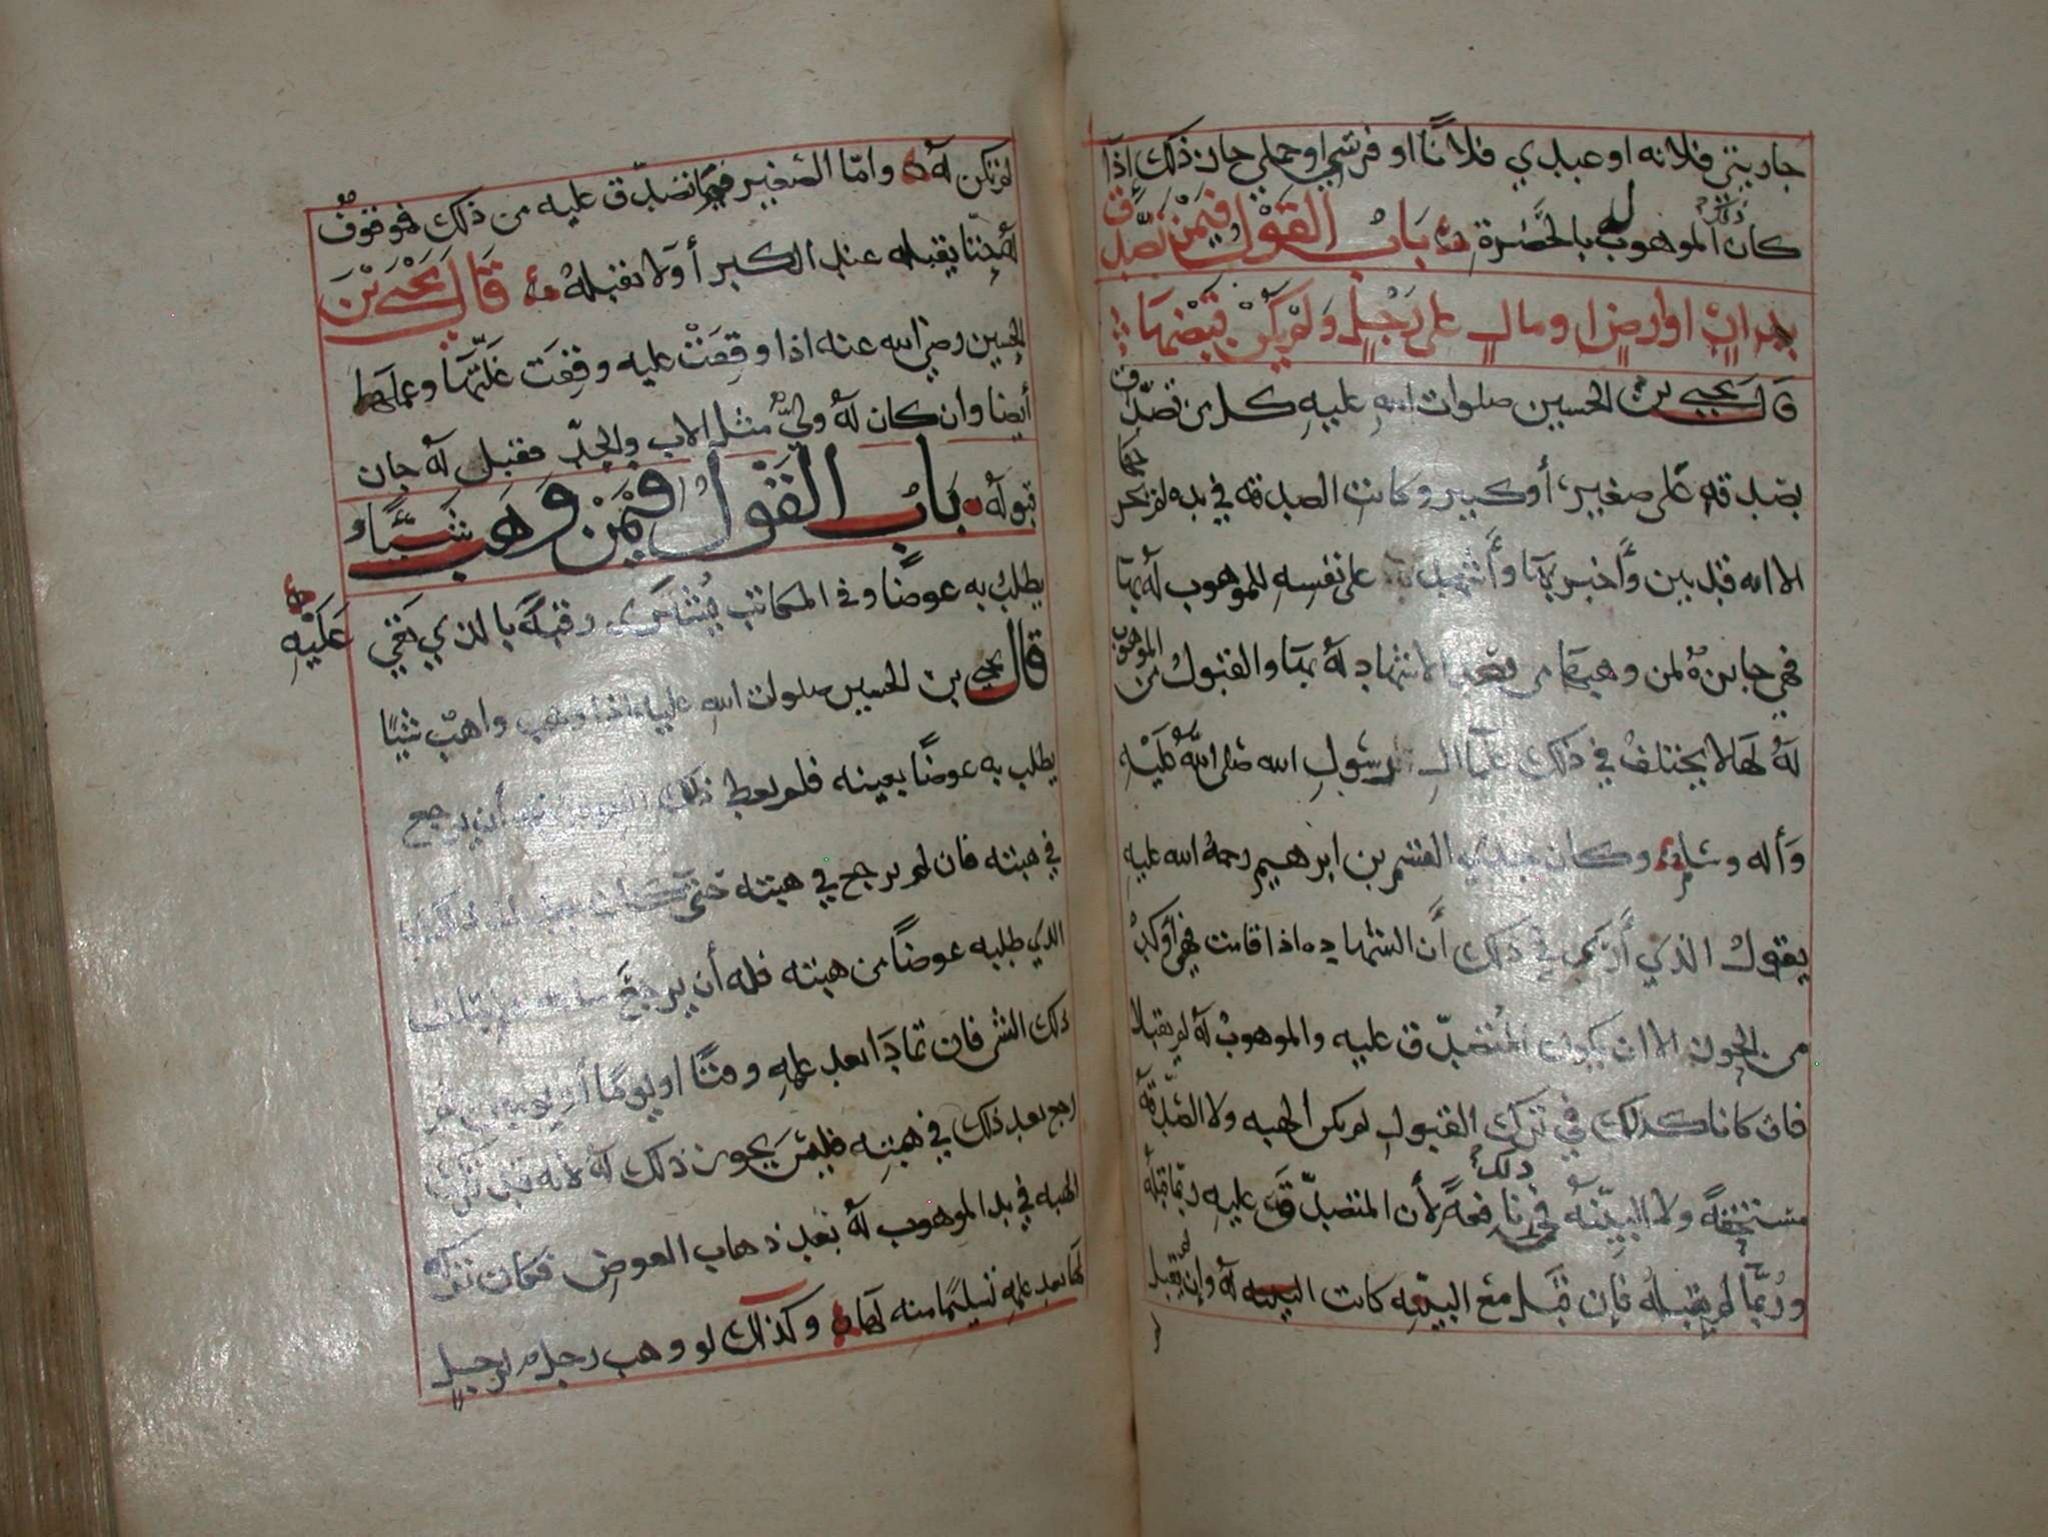 جاريتي فلانه او عبدي فلانًا او فرسي او جملي جاز ذلك اذا
كان ذلك الموهوب له بالحضرة باب القول فيمن تصدق
بدار او ارض او مال على رجل ولم يكن قبضها
قال يحيى بن الحسين صلوات الله عليه كل من تصدق
بصدقه على صغير أو كبير وكانت الصدقه في يده لم تحز
الا انه قد بين وأخبر بها وأشهد بها على نفسه للموهوب له بها
فهي جايزة لمن وهبها من بعد الاشهاد له بها والقبول من الموهوب
له لها لا يختلف في ذلك علما آل رسول الله صلى الله عليه
وأله وسلم وكان جدي القسم بن ابرهيم رحمة الله عليه
يقول الذي أرى في ذلك أن الشهاده اذا قامت فهي أوكد
من الحوز الا ان يكون المتصدق عليه والموهوب له لم يقبلا
فان كانا كذلك في ترك القبول لم يكن الهبه ولا الصدقة
مستحقة ولا البينه في ذلك نافعة لأن المتصدق عليه ربما قبله
وربما لم يقبله فإن قبل مع البينه كانت البينه له وإن لم يقبل
لم تكن له واما الصغير فيما تصدق عليه من ذلك فموقوف
له حتى يقبله عند الكبر أو لا يقبله قال يحيى بن
الحسين رضي الله عنه اذا وقفت عليه وقفت غلتها وعملها
أيضا وان كان له ولي مثل الاب والجد فقبل له جاز
قبوله باب القول فيمن وهب شيئا و
يطلب به عوضًا وفي المكاتب يُشترى رقبة بالذي بقي عليه
قال يحيى بن الحسين صلوات الله عليه اذا وهب واهب شيئًا
يطلب به عوضًا بعينه فلم يعط ذلك العوض فله أن يرجع
في هبته فان لم يرجع في هبته حتى
الذي طلبه عوضًا من هبته فله أن يرجع
ذلك الشي فان تمادا بعد علمه وقتًا او يومًا أو يومين ثم
رجع بعد ذلك في هبته فليس يجوز ذلك له لانه قد ترك
الهبه في يد الموهوب له بعد ذهاب العوض فكان تركه
لها بعد علمه تسليمًا منه لها وكذلك لو وهب رجل لرجل